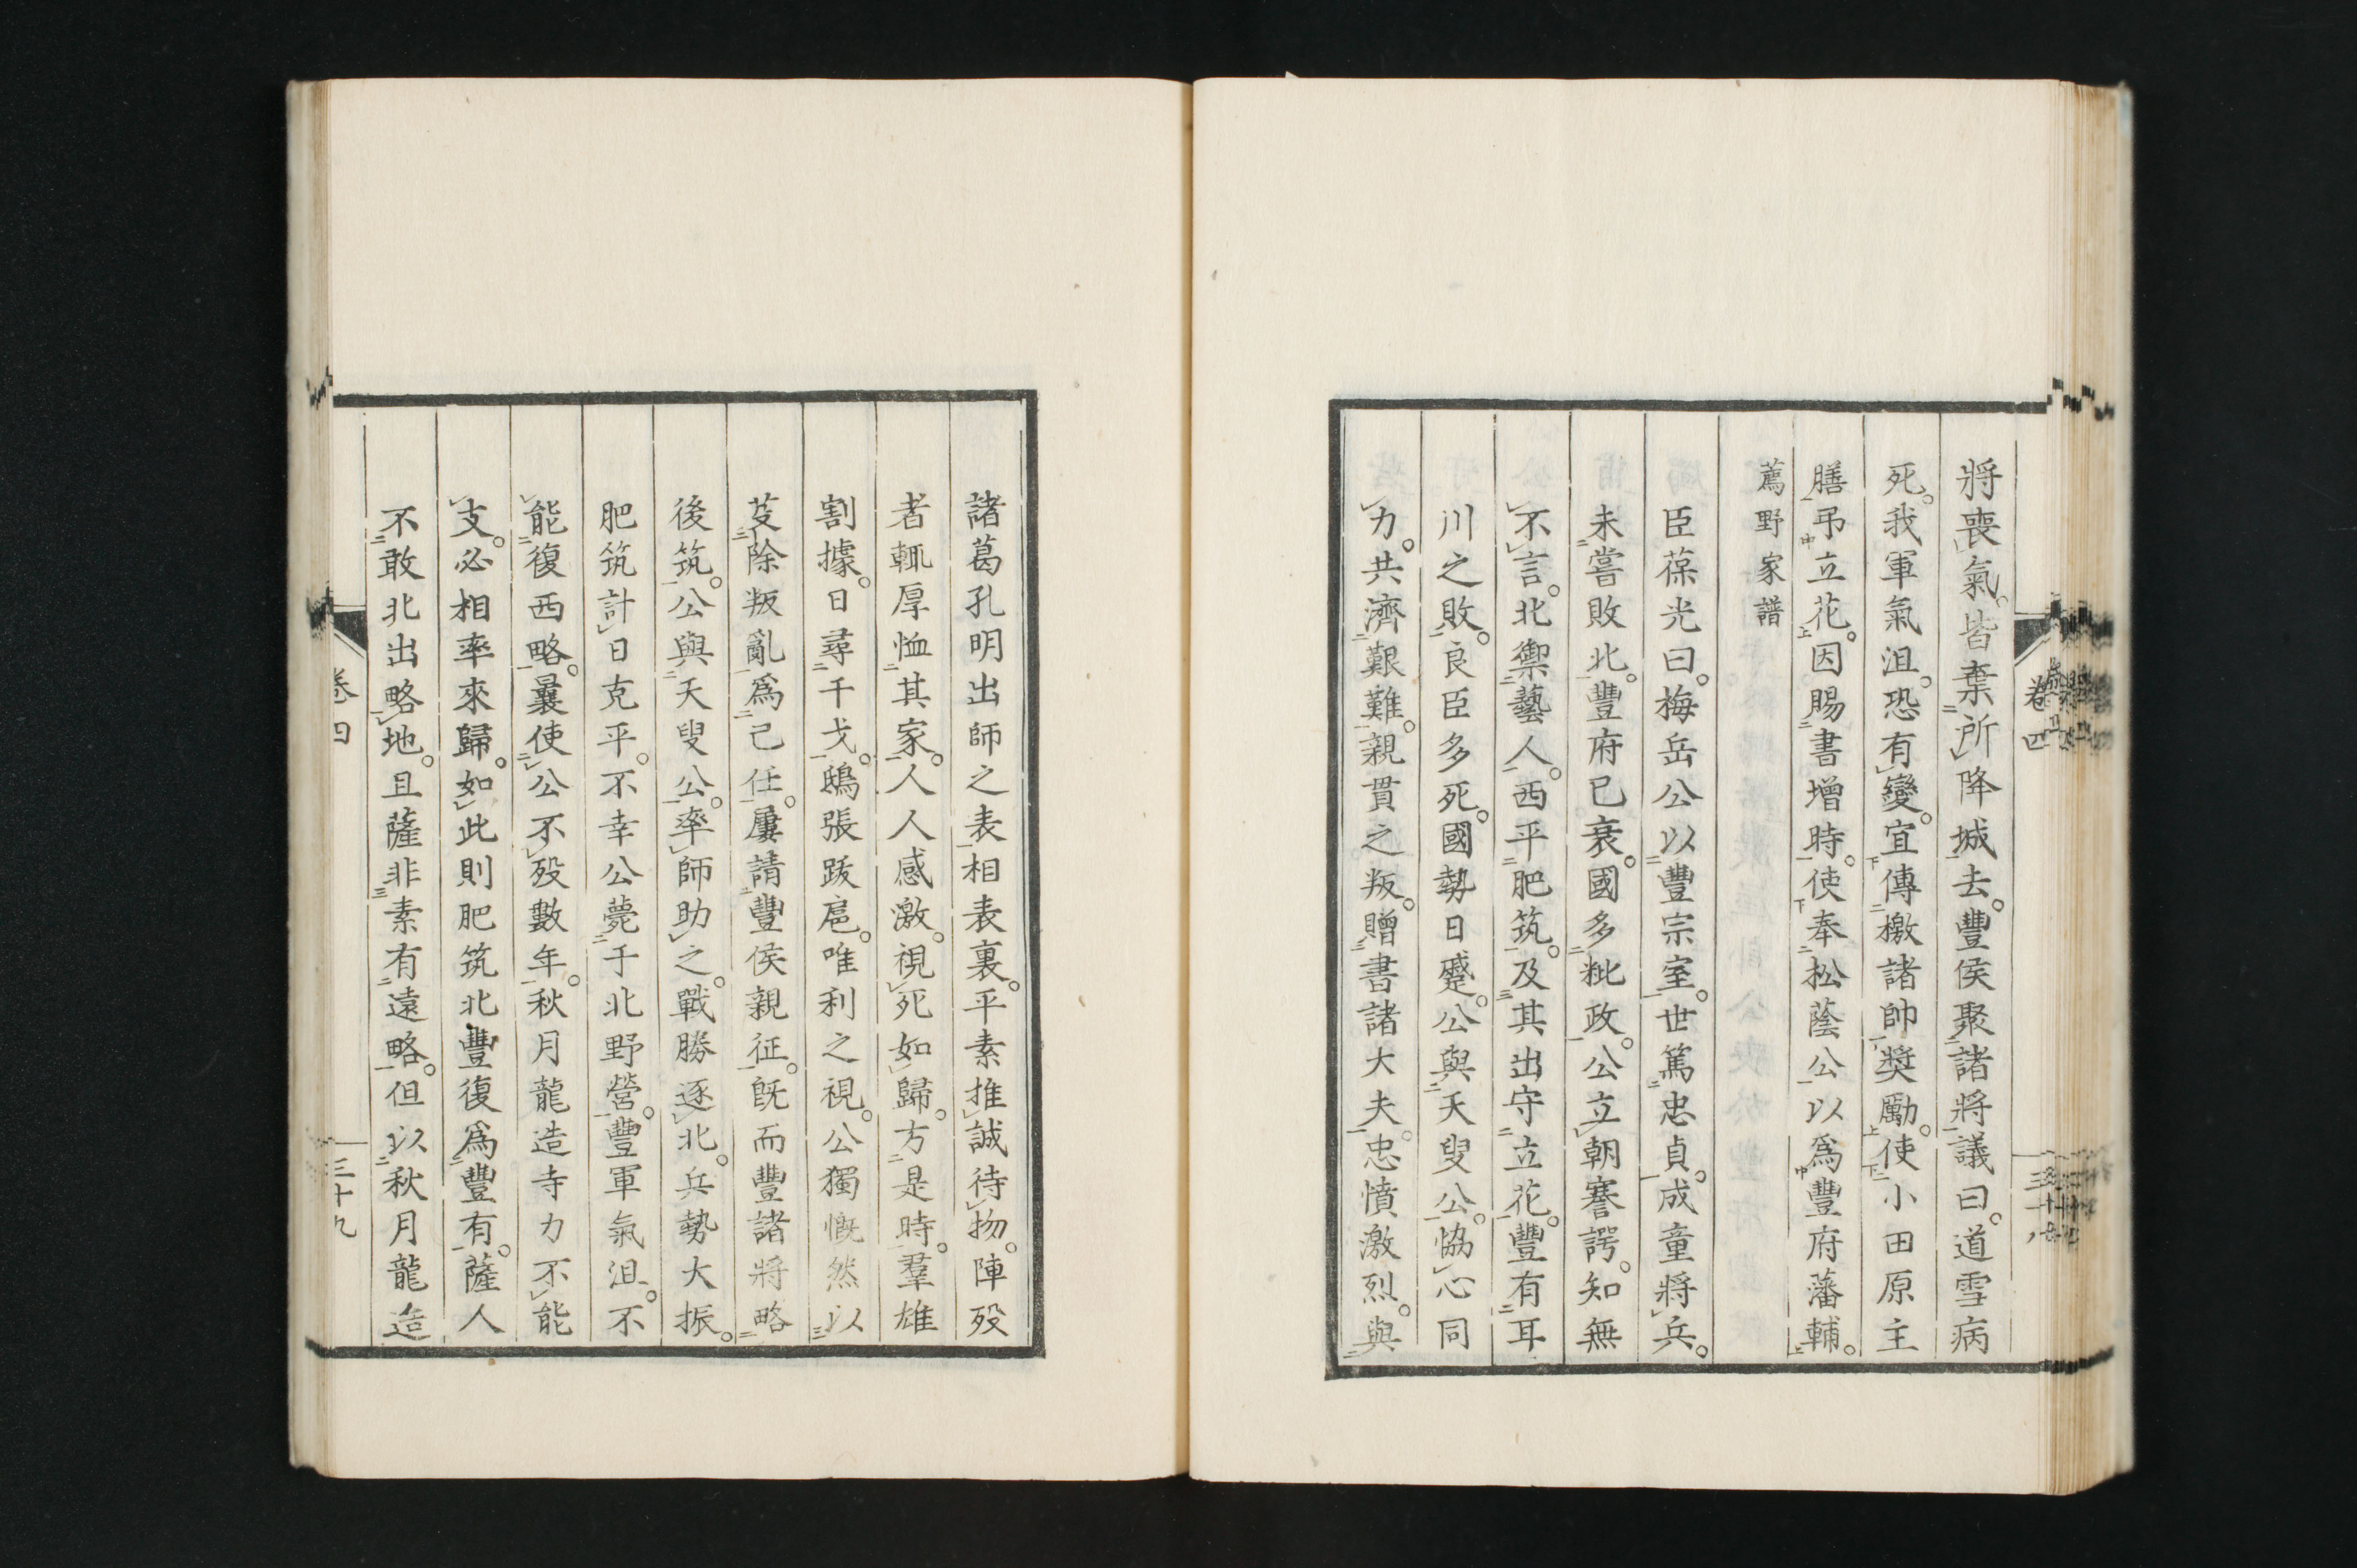 將喪氣。皆棄所降城去。豐侯聚諸將議曰。道雪病
死。我軍氣沮。恐有變。宜傳檄諸帥奬勵。使小田原主
膳弔立花。因賜書增時。使奉松蔭公以爲豐府藩輔。
薦野家譜
臣葆光曰。梅岳公以豐宗室。世篤忠貞。成童將兵。
未嘗敗北。豐府已衰。國多粃政。公立朝謇諤。知無
不言。北禦藝人。西平肥筑。及其出守立花。豐有耳
川之敗。良臣多死。國勢日蹙。公與天叟公。恊心同
力。共濟艱難。親貫之叛。贈書諸大夫。忠憤激烈。與
卷四
諸葛孔明出師之表相表裏。平素推誠待物。陣歿
者輒厚恤其家。人人感激。視死如歸。方是時。羣雄
割據。日尋干戈。鴟張跋扈。唯利之視。公獨慨然以
芟除叛亂爲己任。屢請豐侯親征。旣而豐諸將略
後筑。公與天叟公。率師助之。戰勝逐北。兵勢大振。
肥筑計日克平。不幸公薨于北野營。豐軍氣沮。不
能復西略。曩使公不歿數年。秋月龍造寺力不能
支。必相率來歸。如此則肥筑北豐復爲豐有。薩人
不敢北出略地。且薩非素有遠略。但以秋月龍造
卷四
三十九